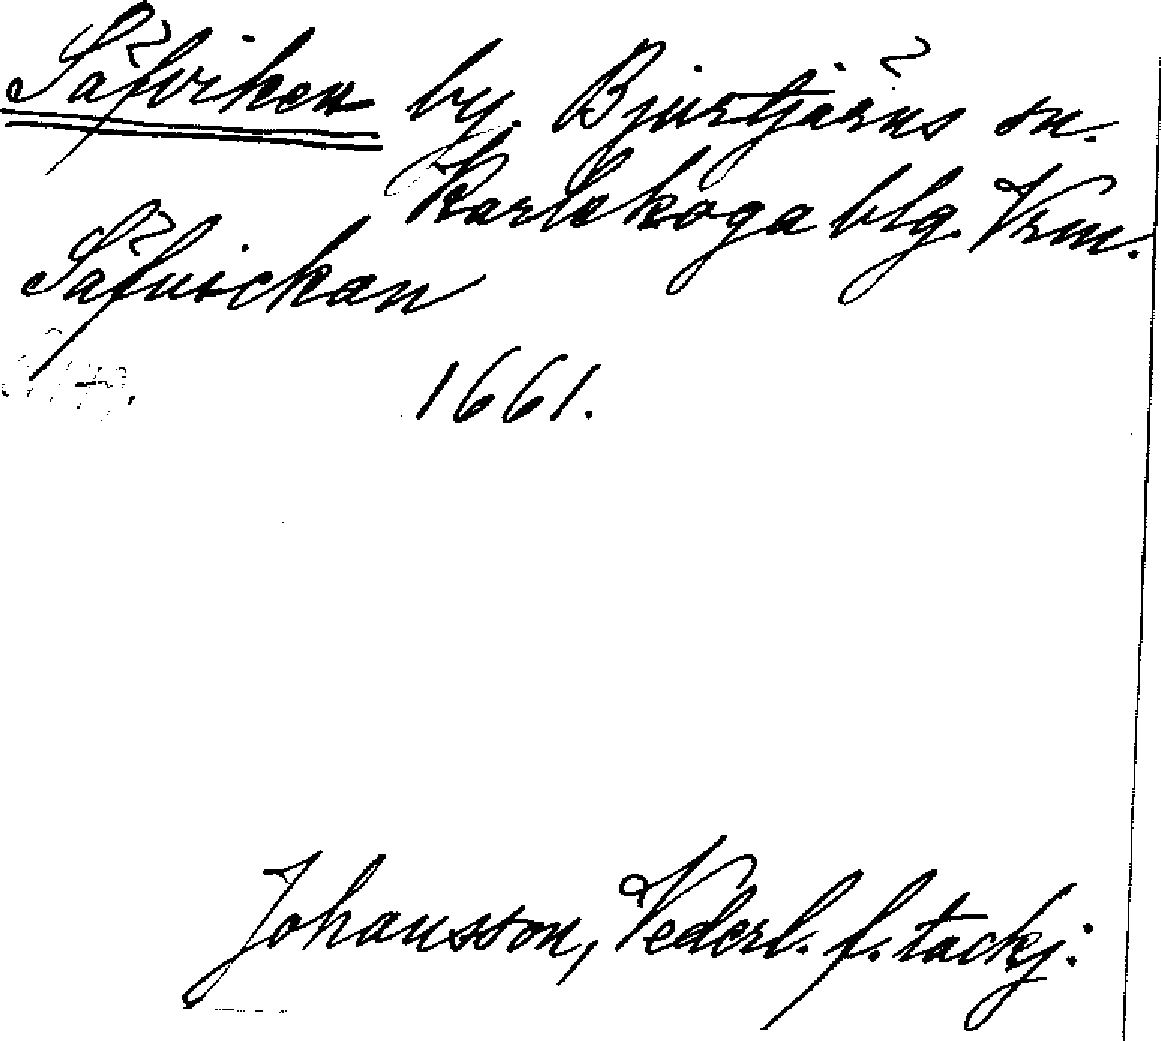 Säfviken by. Bjurtjärns sn.
Karlskoga blg. Vrm.
Säfwickan
1661.
Johansson, Vederl. f. tackj: